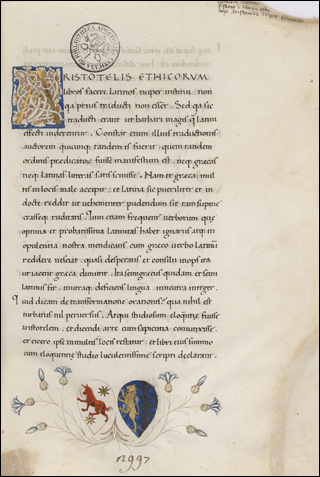 ARISTOTELIS ETHICORUM
libros facere Latinos nuper institui non
qa prius traducti non essent. Sed qa sic
traducti erant ut barbari magis q̃ latini
effecti viderentur. Constat enim illius traductionis
auctorem quicunq; tandem is fuerit quem tandem
ordinis predicatorum fuisse manifestum est. neq; grecas
neq; latinas litteras satis scivisse. Nam et greca mul
tis in locis male accipit. et latina sic pueriliter et in
docte reddit ut vehementer pudendum sit tam supine
crasseq; ruditatis. Quin etiam frequenter verborum que
optima et probatissima latinitas habet ignarus atq; in
opulentia nostra mendicans cum greco verbo latinũ
reddere nesciat. quasi desperans et consilii inops ita
ut iacent greca dimittit. Ita semigrecus quidam et semi
latinus fit. in utraq; deficiens lingua in neutra integer.
Quid dicam de transformatione orationis qua nihil est
turbatius nil perversius. Atqui studium eloquentie fuisse
aristotelem. et dicendi artem cum sapientia coniunxisse.
et cicero ipse in multis locis testatur. et libri eius summo
cum eloquentie studio luculentissime scripti declarant.
1997